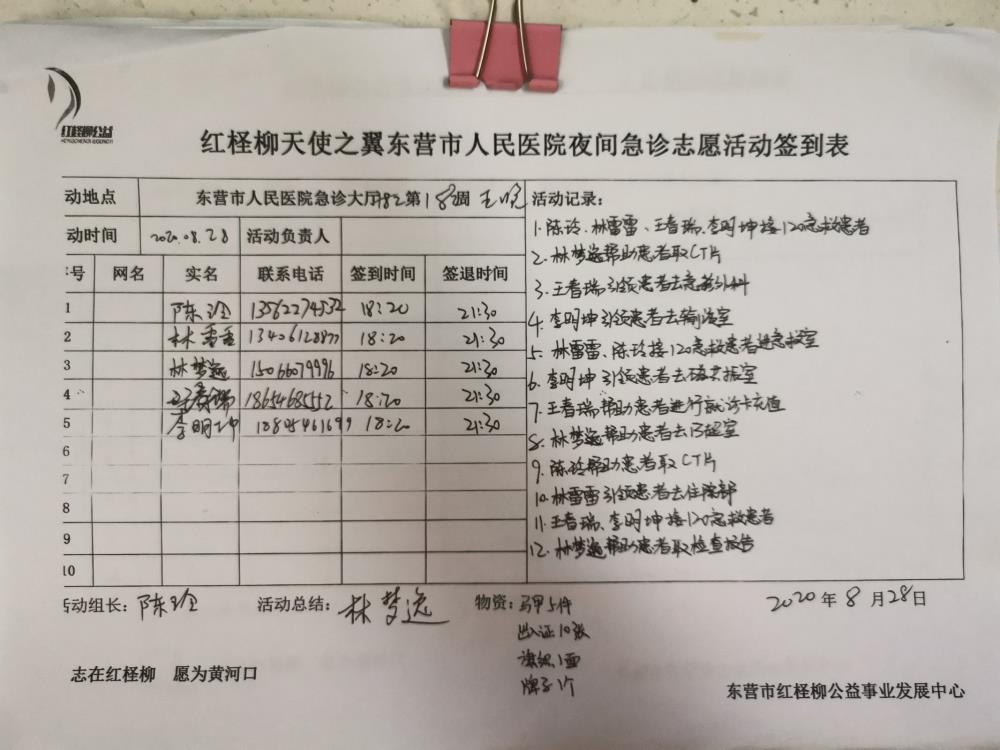 红柽柳公益
红柽柳天使之翼东营市人民医院夜间急诊志愿活动签到表
动地点 东营市人民医院急诊大厅 第18周
动时间 2020.08.28 活动负责人
号 网名 实名 联系电话 签到时间 签退时间
1 陈玲 13562274532 18:20 21:30
2 林雷雷 18:20 21:30
3 林梦遥 15066079996 18:20 21:30
4 王春瑞 18654685552 18:20 21:30
5 李明坤 18845461699 18:20 21:30
6
7
8
9
10
活动记录:
1.陈玲、林雷雷、王春瑞、李明坤接120急救患者
2.林梦遥帮助患者取CT片
3.王春瑞引领患者去急诊外科
4.李明坤引领患者去输液室
5.林雷雷、陈玲接120急救患者进急救室
6.李明坤引领患者去磁共振室
7.王春瑞帮助患者进行就诊卡充值
8.林梦遥帮助患者去B超室
9.陈玲帮助患者取CT片
10.林雷雷引领患者去住院部
11.王春瑞、李明坤接120急救患者
12.林梦遥帮助患者取检查报告
活动组长:陈玲 活动总结:林梦遥 物资:马甲5件
出入证10张
旗帜1面
牌子1个
2020年8月28日
志在红柽柳 愿为黄河口
东营市红柽柳公益事业发展中心